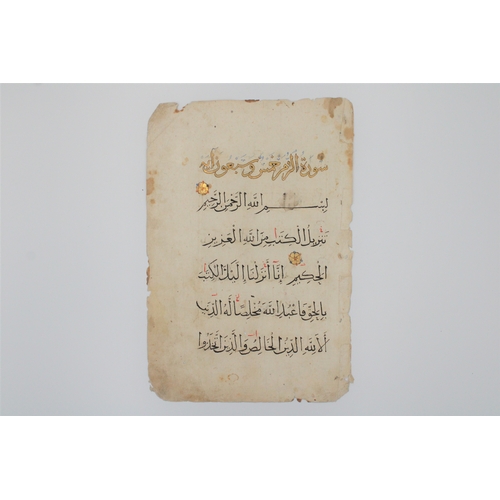 سورة الزمر خمس وسبعون آية
بسم الله الرحمن الرحيم
تنزيل الكتب من الله العزيز
الحكيم إنا أنزلنا إليك الكتب
بالحق فاعبد الله مخلصا له الدين
ألا لله الدين الخالص والذين اتخذوا